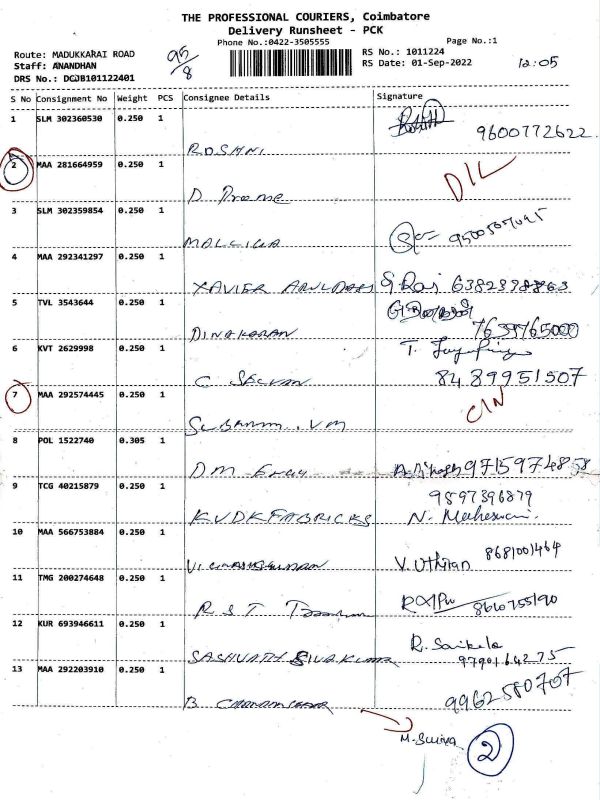 THE PROFESSIONAL COURIERS, Coimbatore
Delivery Runsheet - PCK
Phone No.:0422-3505555 Page No.:1
Route: MADUKKARAI ROAD 95/8 RS No.: 1011224
Staff: ANANDHAN RS Date: 01-Sep-2022 12:05
DRS No.: DCJB101122401
S No Consignment No Weight PCS Consignee Details Signature
1 SLM 302360530 0.250 1
ROSHNI 9600772622
2 MAA 281664959 0.250 1 D/L
D
3 SLM 302359854 0.250 1
MALLIGA
4 MAA 292341297 0.250 1
XAVIER
5 TVL 3543644 0.250 1
DINAKARAN
6 KVT 2629998 0.250 1 T.
C SELVAN 8489951507
7 MAA 292574445 0.250 1 C/N
8 POL 1522740 0.305 1
DM 9715974858
9 TCG 40215879 0.250 1 9597396879
KVDK FABRICKS N. Maheswari.
10 MAA 566753884 0.250 1
V. Uthiran 8681001464
11 TMG 200274648 0.250 1
R S T
12 KUR 693946611 0.250 1 R. Saikala
SASHVATH SIVAKUMAR 9790164275
13 MAA 292203910 0.250 1
B 9962580707
M. Suriya 2